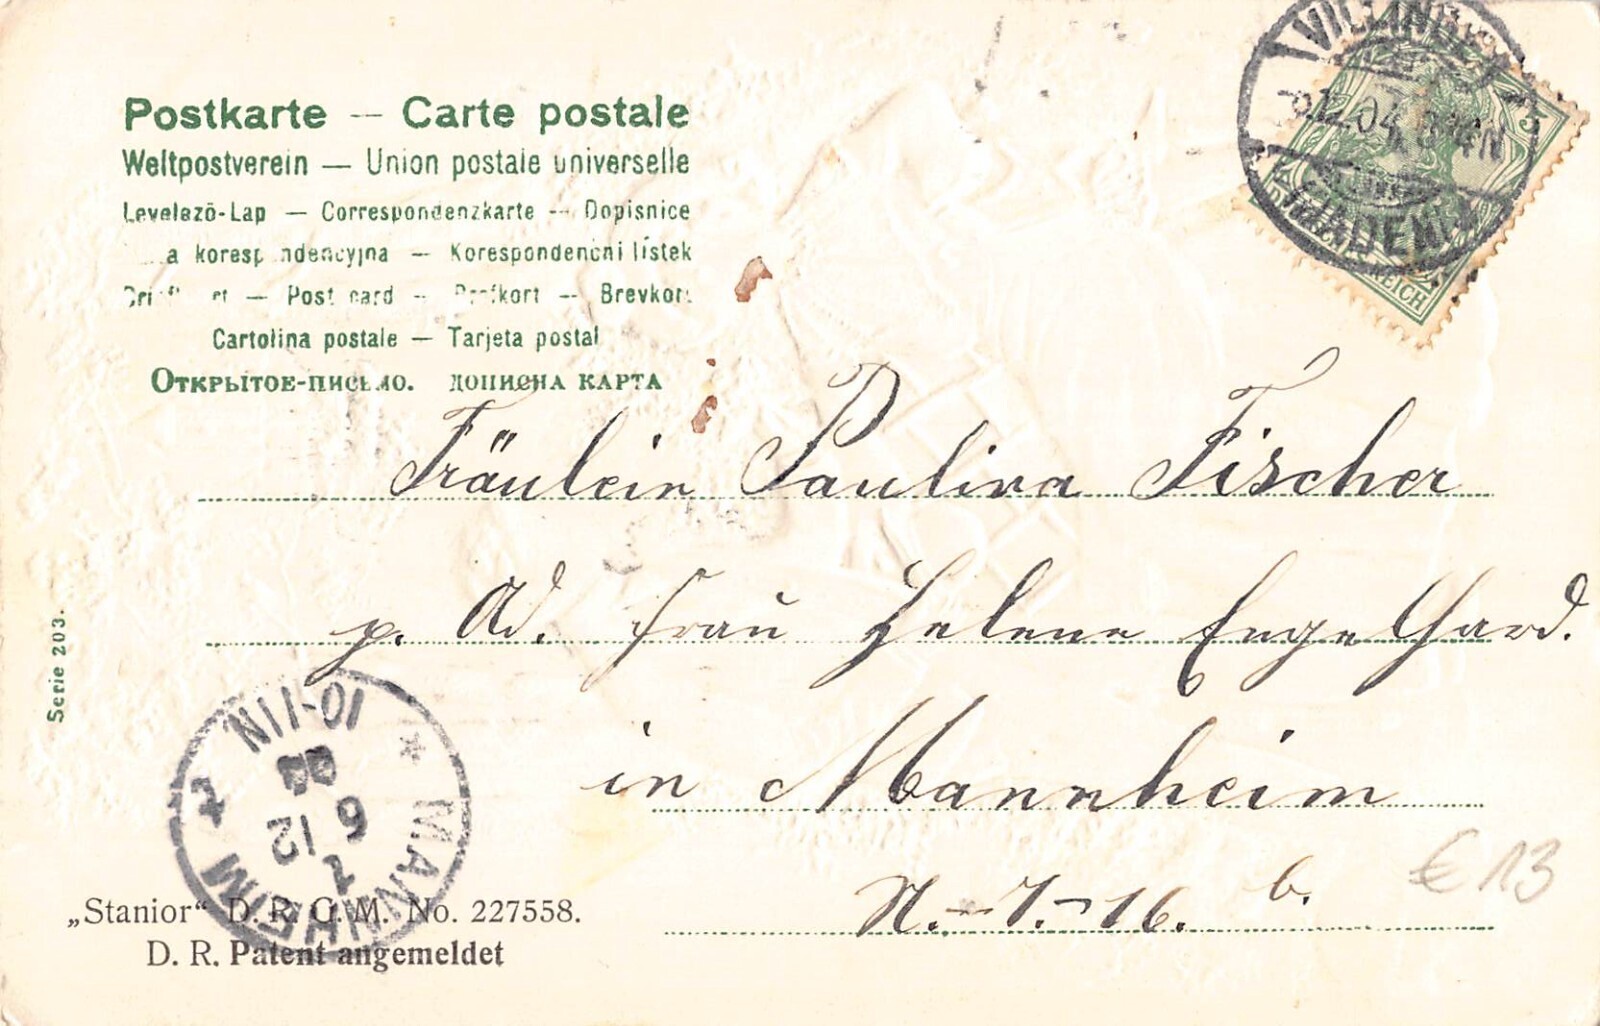 Postkarte — Carte postale
Weltpostverein — Union postale universelle
Levelező-Lap — Correspondenzkarte — Dopisnice
a korespondencyjna — Korespondenční lístek
Post card — Brevkort
Cartolina postale — Tarjeta postal
Открытое-письмо. дописна карта
5
REICH
5.12.04
(BADEN)
Fräulein Paulina Fischer
p. Ad. Frau Helene Engelhard.
in Mannheim
N. – 7. – 16. b.
€ 13
Serie 203.
* MANNHEIM 1
6 12
10-11N
„Stanior“ D. R. G. M. No. 227558.
D. R. Patent angemeldet